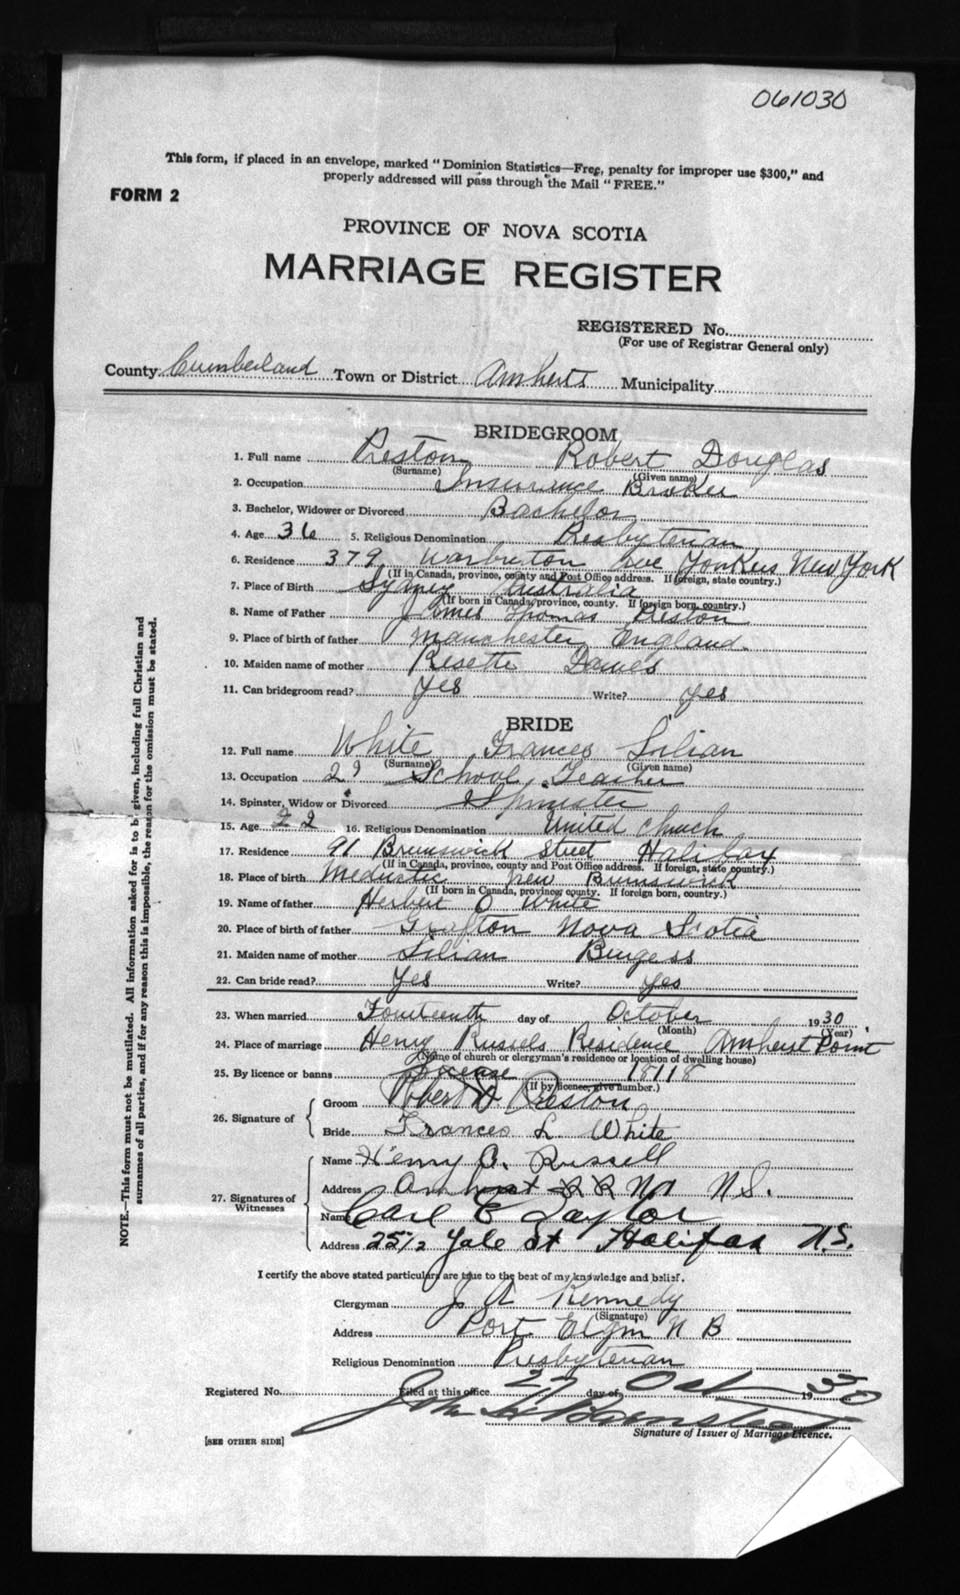 061030
This form, if placed in an envelope, marked "Dominion Statistics—Free, penalty for improper use $300," and
properly addressed will pass through the Mail "FREE."
FORM 2
PROVINCE OF NOVA SCOTIA
MARRIAGE REGISTER
REGISTERED No.
(For use of Registrar General only)
County Cumberland Town or District Amherst Municipality
BRIDEGROOM
1. Full name Preston Robert Douglas
(Surname) (Given name)
2. Occupation Insurance Broker
3. Bachelor, Widower or Divorced Bachelor
4. Age 36 5. Religious Denomination Presbyterian
6. Residence 379 Warburton Ave Yonkers New York
(If in Canada, province, county and Post Office address. If foreign, state country.)
7. Place of Birth Sydney Australia
(If born in Canada, province, county. If foreign born, country.)
8. Name of Father James Thomas Preston
9. Place of birth of father Manchester England
10. Maiden name of mother Rosette Dawes
11. Can bridegroom read? Yes Write? yes
BRIDE
12. Full name White Frances Lilian
(Surname) (Given name)
13. Occupation School Teacher
14. Spinster, Widow or Divorced Spinster
15. Age 22 16. Religious Denomination United Church
17. Residence 91 Brunswick Street Halifax
(If in Canada, province, county and Post Office address. If foreign, state country.)
18. Place of birth Meductic New Brunswick
(If born in Canada, province, county. If foreign born, country.)
19. Name of father Herbert O White
20. Place of birth of father Grafton Nova Scotia
21. Maiden name of mother Lilian Burgess
22. Can bride read? Yes Write? yes
23. When married Fourteenth day of October 1930
(Month) (Year)
24. Place of marriage Henry Russels Residence Amherst Point
(Name of church or clergyman's residence or location of dwelling house)
25. By licence or banns License 18118
(If by licence, give number.)
26. Signature of Groom Robert D. Preston
Bride Frances L. White
27. Signatures of Witnesses
Name Henry A. Russell
Address Amherst R R No N.S.
Name Carl E Taylor
Address 25½ Yale St Halifax N.S.
I certify the above stated particulars are true to the best of my knowledge and belief.
Clergyman J A Kennedy
(Signature)
Address Port Elgin N B
Religious Denomination Presbyterian
Registered No. Filed at this office 27 day of Oct 1930
John
Signature of Issuer of Marriage Licence.
[SEE OTHER SIDE]
NOTE.—This form must not be mutilated. All information asked for is to be given, including full Christian and
surnames of all parties, and if for any reason this is impossible, the reason for the omission must be stated.